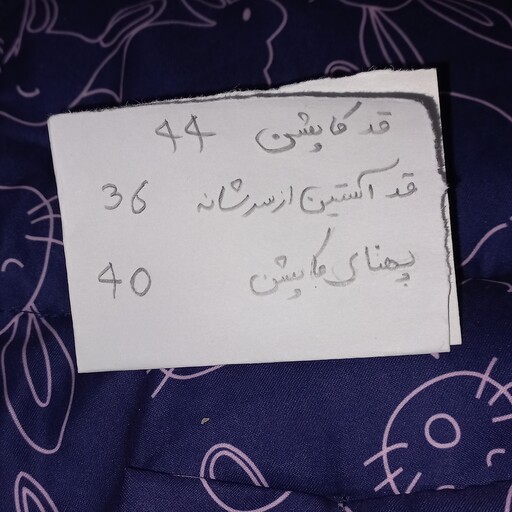 قد کاپشن 44
قد آستین از سرشانه 36
پهنای کاپشن 40